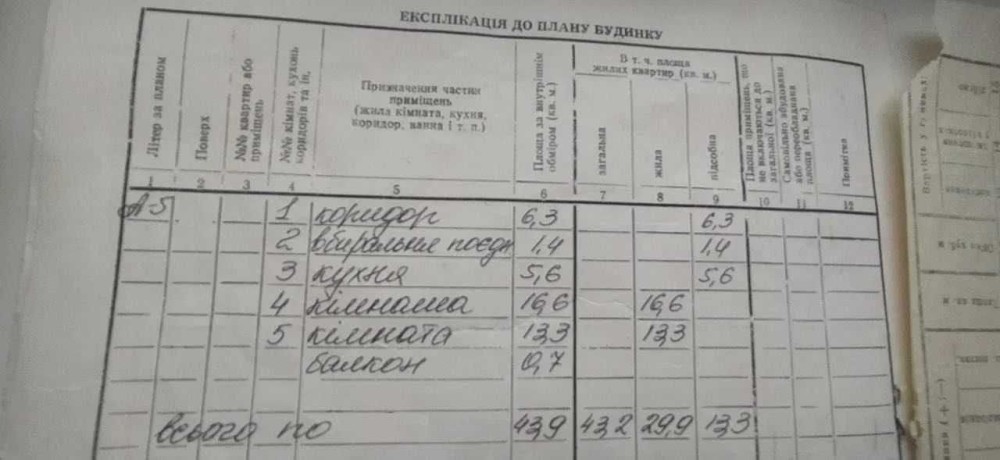 ЕКСПЛІКАЦІЯ ДО ПЛАНУ БУДИНКУ
Літер за планом
Поверх
№№ квартир або приміщень
№№ кімнат, кухонь коридорів та ін.
Призначення частин приміщень (жила кімната, кухня, коридор, ванна і т. п.)
Площа за внутрішнім обміром (кв. м.)
В т. ч. площа жилих квартир (кв. м.)
загальна
жила
підсобна
Площа приміщень, що не включаються до загальної (кв. м.)
Самовільно збудована або переобладнана площа (кв. м.)
Примітка
1 2 3 4 5 6 7 8 9 10 11 12
А-5 1 коридор 6,3 6,3
2 вбиральня поєдн 1,4 1,4
3 кухня 5,6 5,6
4 кімната 16,6 16,6
5 кімната 13,3 13,3
балкон 0,7
всього по 43,9 43,2 29,9 13,3